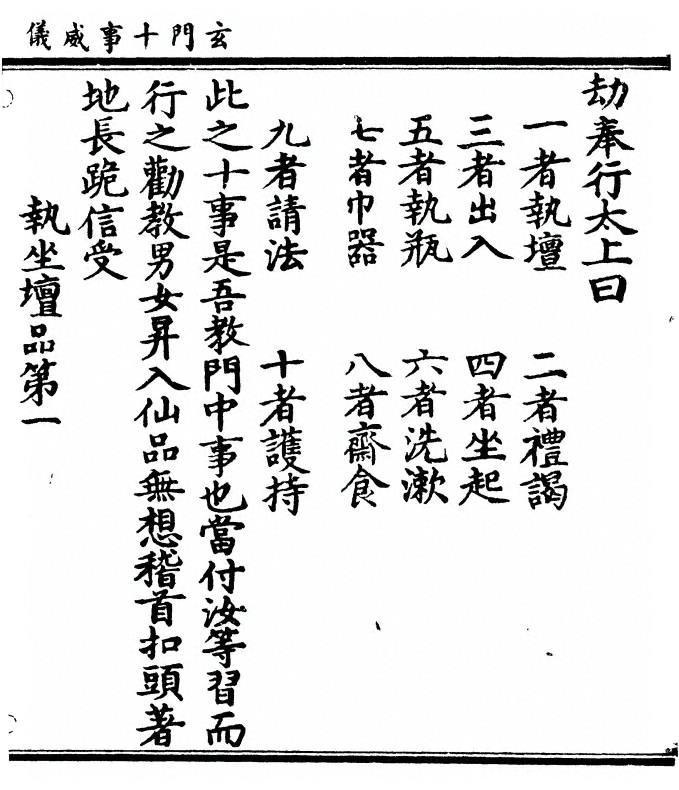 玄門十事威儀
劫奉行太上曰
一者執壇 二者禮謁
三者出入 四者坐起
五者執瓶 六者洗漱
七者巾器 八者齋食
九者請法 十者護持
此之十事是吾教門中事也當付汝等習而
行之勸教男女昇入仙品無想稽首扣頭著
地長跪信受
執坐壇品第一